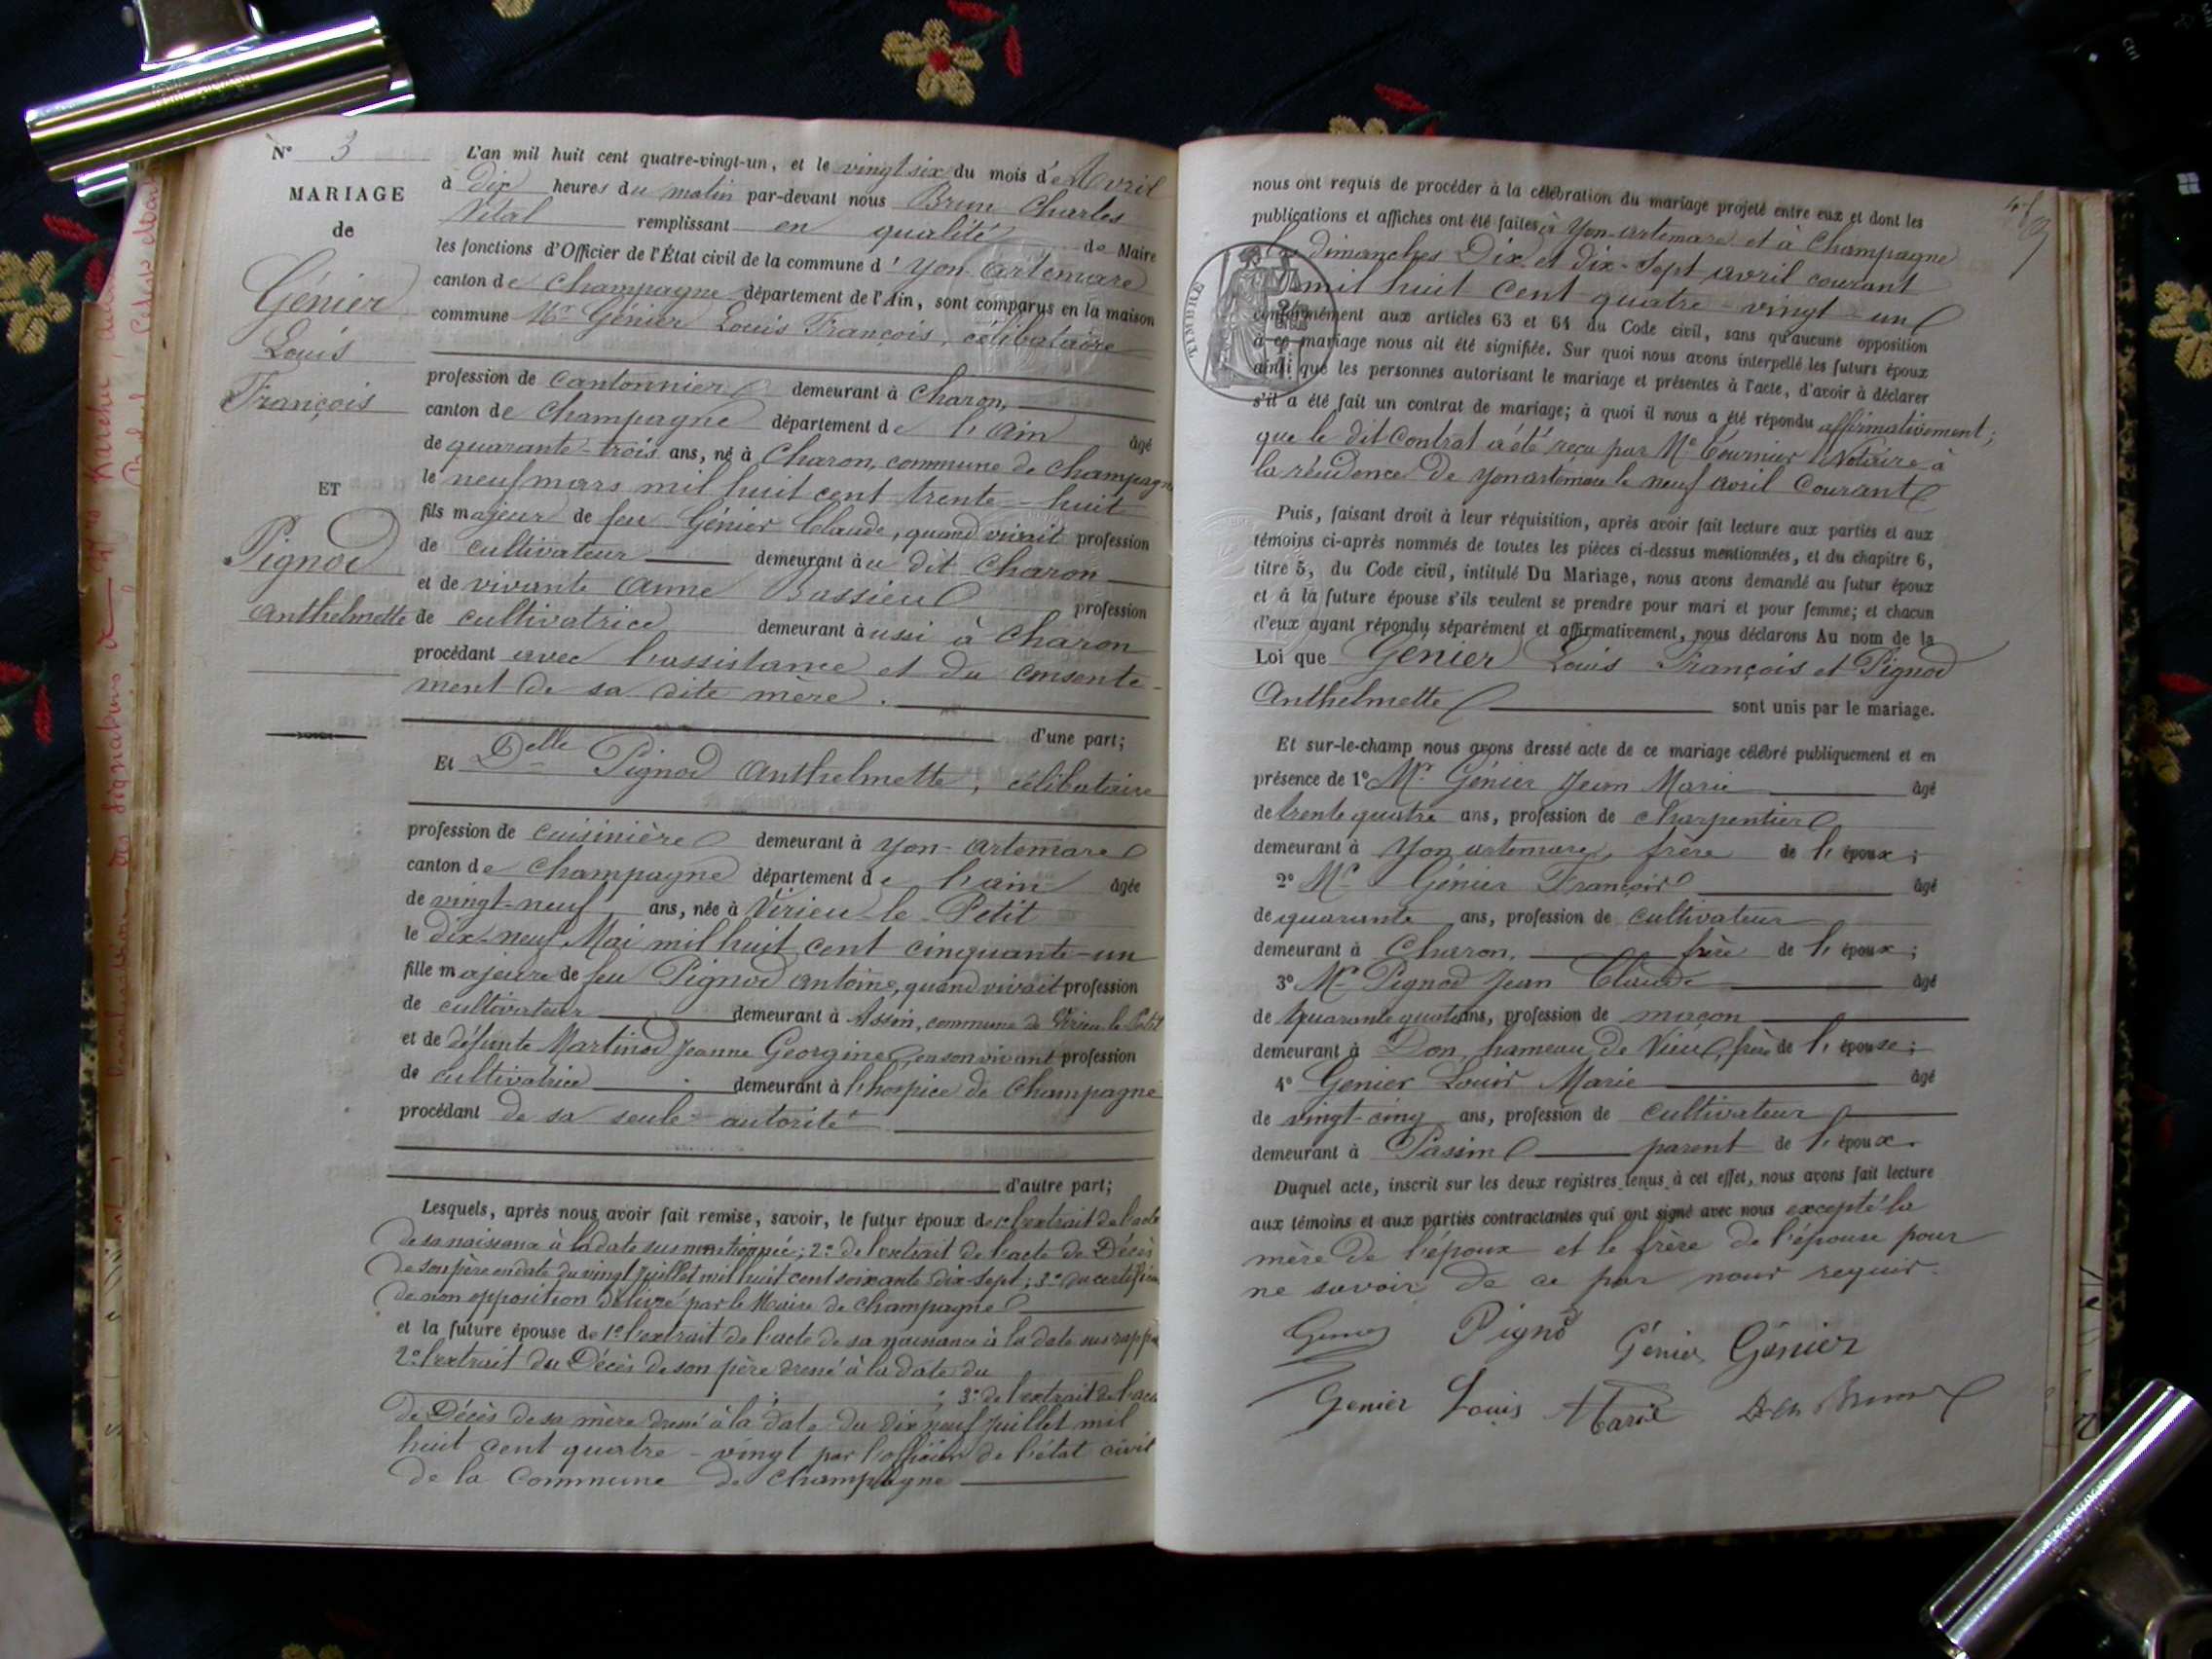 N° 3
MARIAGE
de
Génier
Louis
François
ET
Pignod
Anthelmette
L'an mil huit cent quatre-vingt-un, et le vingt six du mois d'Avril
à Dix heures du matin par-devant nous Brun Charles
Vital remplissant en qualité de Maire
les fonctions d'Officier de l'État civil de la commune d'Yon-Artemare
canton de Champagne département de l'Ain, sont comparus en la maison
commune Mr Génier Louis François, célibataire
profession de cantonnier demeurant à Charon,
canton de Champagne département de l'Ain âgé
de quarante-trois ans, né à Charon, commune de Champagne
le neuf mars mil huit cent trente-huit
fils majeur de feu Génier Claude, quand vivait profession
de cultivateur demeurant au dit Charon
et de vivante Anne Bassieu profession
de cultivatrice demeurant aussi à Charon
procédant avec l'assistance et du consente-
ment de sa dite mère.
d'une part;
Et Delle Pignod Anthelmette, célibataire
profession de cuisinière demeurant à Yon-Artemare
canton de Champagne département de l'ain âgée
de vingt-neuf ans, née à Virieu-le-Petit
le dix-neuf Mai mil huit cent cinquante-un
fille majeure de feu Pignod Antoine, quand vivait profession
de cultivateur demeurant à Assin, commune de Virieu le Petit
et de défunte Martinod Jeanne Georgine, en son vivant profession
de cultivatrice demeurant à l'hospice de Champagne
procédant de sa seule autorité
d'autre part;
Lesquels, après nous avoir fait remise, savoir, le futur époux de 1° l'extrait de l'acte
de sa naissance à la date sus mentionnée; 2° de l'extrait de l'acte de Décès
de son père en date du vingt Juillet mil huit cent soixante dix-sept; 3° du certificat
de non opposition délivré par le Maire de Champagne
et la future épouse de 1° l'extrait de l'acte de sa naissance à la date sus
2° l'extrait du Décès de son père dressé à la date du
; 3° de l'extrait de l'acte
de Décès de sa mère dressé à la date du dix neuf Juillet mil
huit cent quatre-vingt par l'officier de l'état civil
de la Commune de Champagne
nous ont requis de procéder à la célébration du mariage projeté entre eux et dont les
publications et affiches ont été faites à Yon-artemare et à Champagne
les dimanches Dix et dix-Sept avril courant
mil huit cent quatre-vingt-un
conformément aux articles 63 et 64 du Code civil, sans qu'aucune opposition
à ce mariage nous ait été signifiée. Sur quoi nous avons interpellé les futurs époux
ainsi que les personnes autorisant le mariage et présentes à l'acte, d'avoir à déclarer
s'il a été fait un contrat de mariage; à quoi il nous a été répondu affirmativement;
que le dit Contrat a été reçu par Me Tournier Notaire à
la résidence de Yon artemare le neuf avril Courant
TIMBRE
Puis, faisant droit à leur réquisition, après avoir fait lecture aux parties et aux
témoins ci-après nommés de toutes les pièces ci-dessus mentionnées, et du chapitre 6,
titre 5, du Code civil, intitulé Du Mariage, nous avons demandé au futur époux
et à la future épouse s'ils veulent se prendre pour mari et pour femme; et chacun
d'eux ayant répondu séparément et affirmativement, nous déclarons Au nom de la
Loi que Génier Louis François et Pignod
Anthelmette sont unis par le mariage.
Et sur-le-champ nous avons dressé acte de ce mariage célébré publiquement et en
présence de 1° Mr Génier Jean Marie âgé
de trente quatre ans, profession de charpentier
demeurant à Yon artemare, frère de l'époux;
2° Mr Génier François âgé
de quarante ans, profession de cultivateur
demeurant à Charon, frère de l'époux;
3° Mr Pignod Jean Claude âgé
de quarante quatre ans, profession de maçon
demeurant à Don, hameau de Vieu, frère de l'épouse;
4° Genier Louis Marie âgé
de vingt-cinq ans, profession de cultivateur
demeurant à Passin parent de l'époux.
Duquel acte, inscrit sur les deux registres tenus à cet effet, nous avons fait lecture
aux témoins et aux parties contractantes qui ont signé avec nous excepté la
mère de l'époux et le frère de l'épouse pour
ne savoir de ce par nous requis.
Genier Pigno Génier Génier
Genier Louis Marie Brun